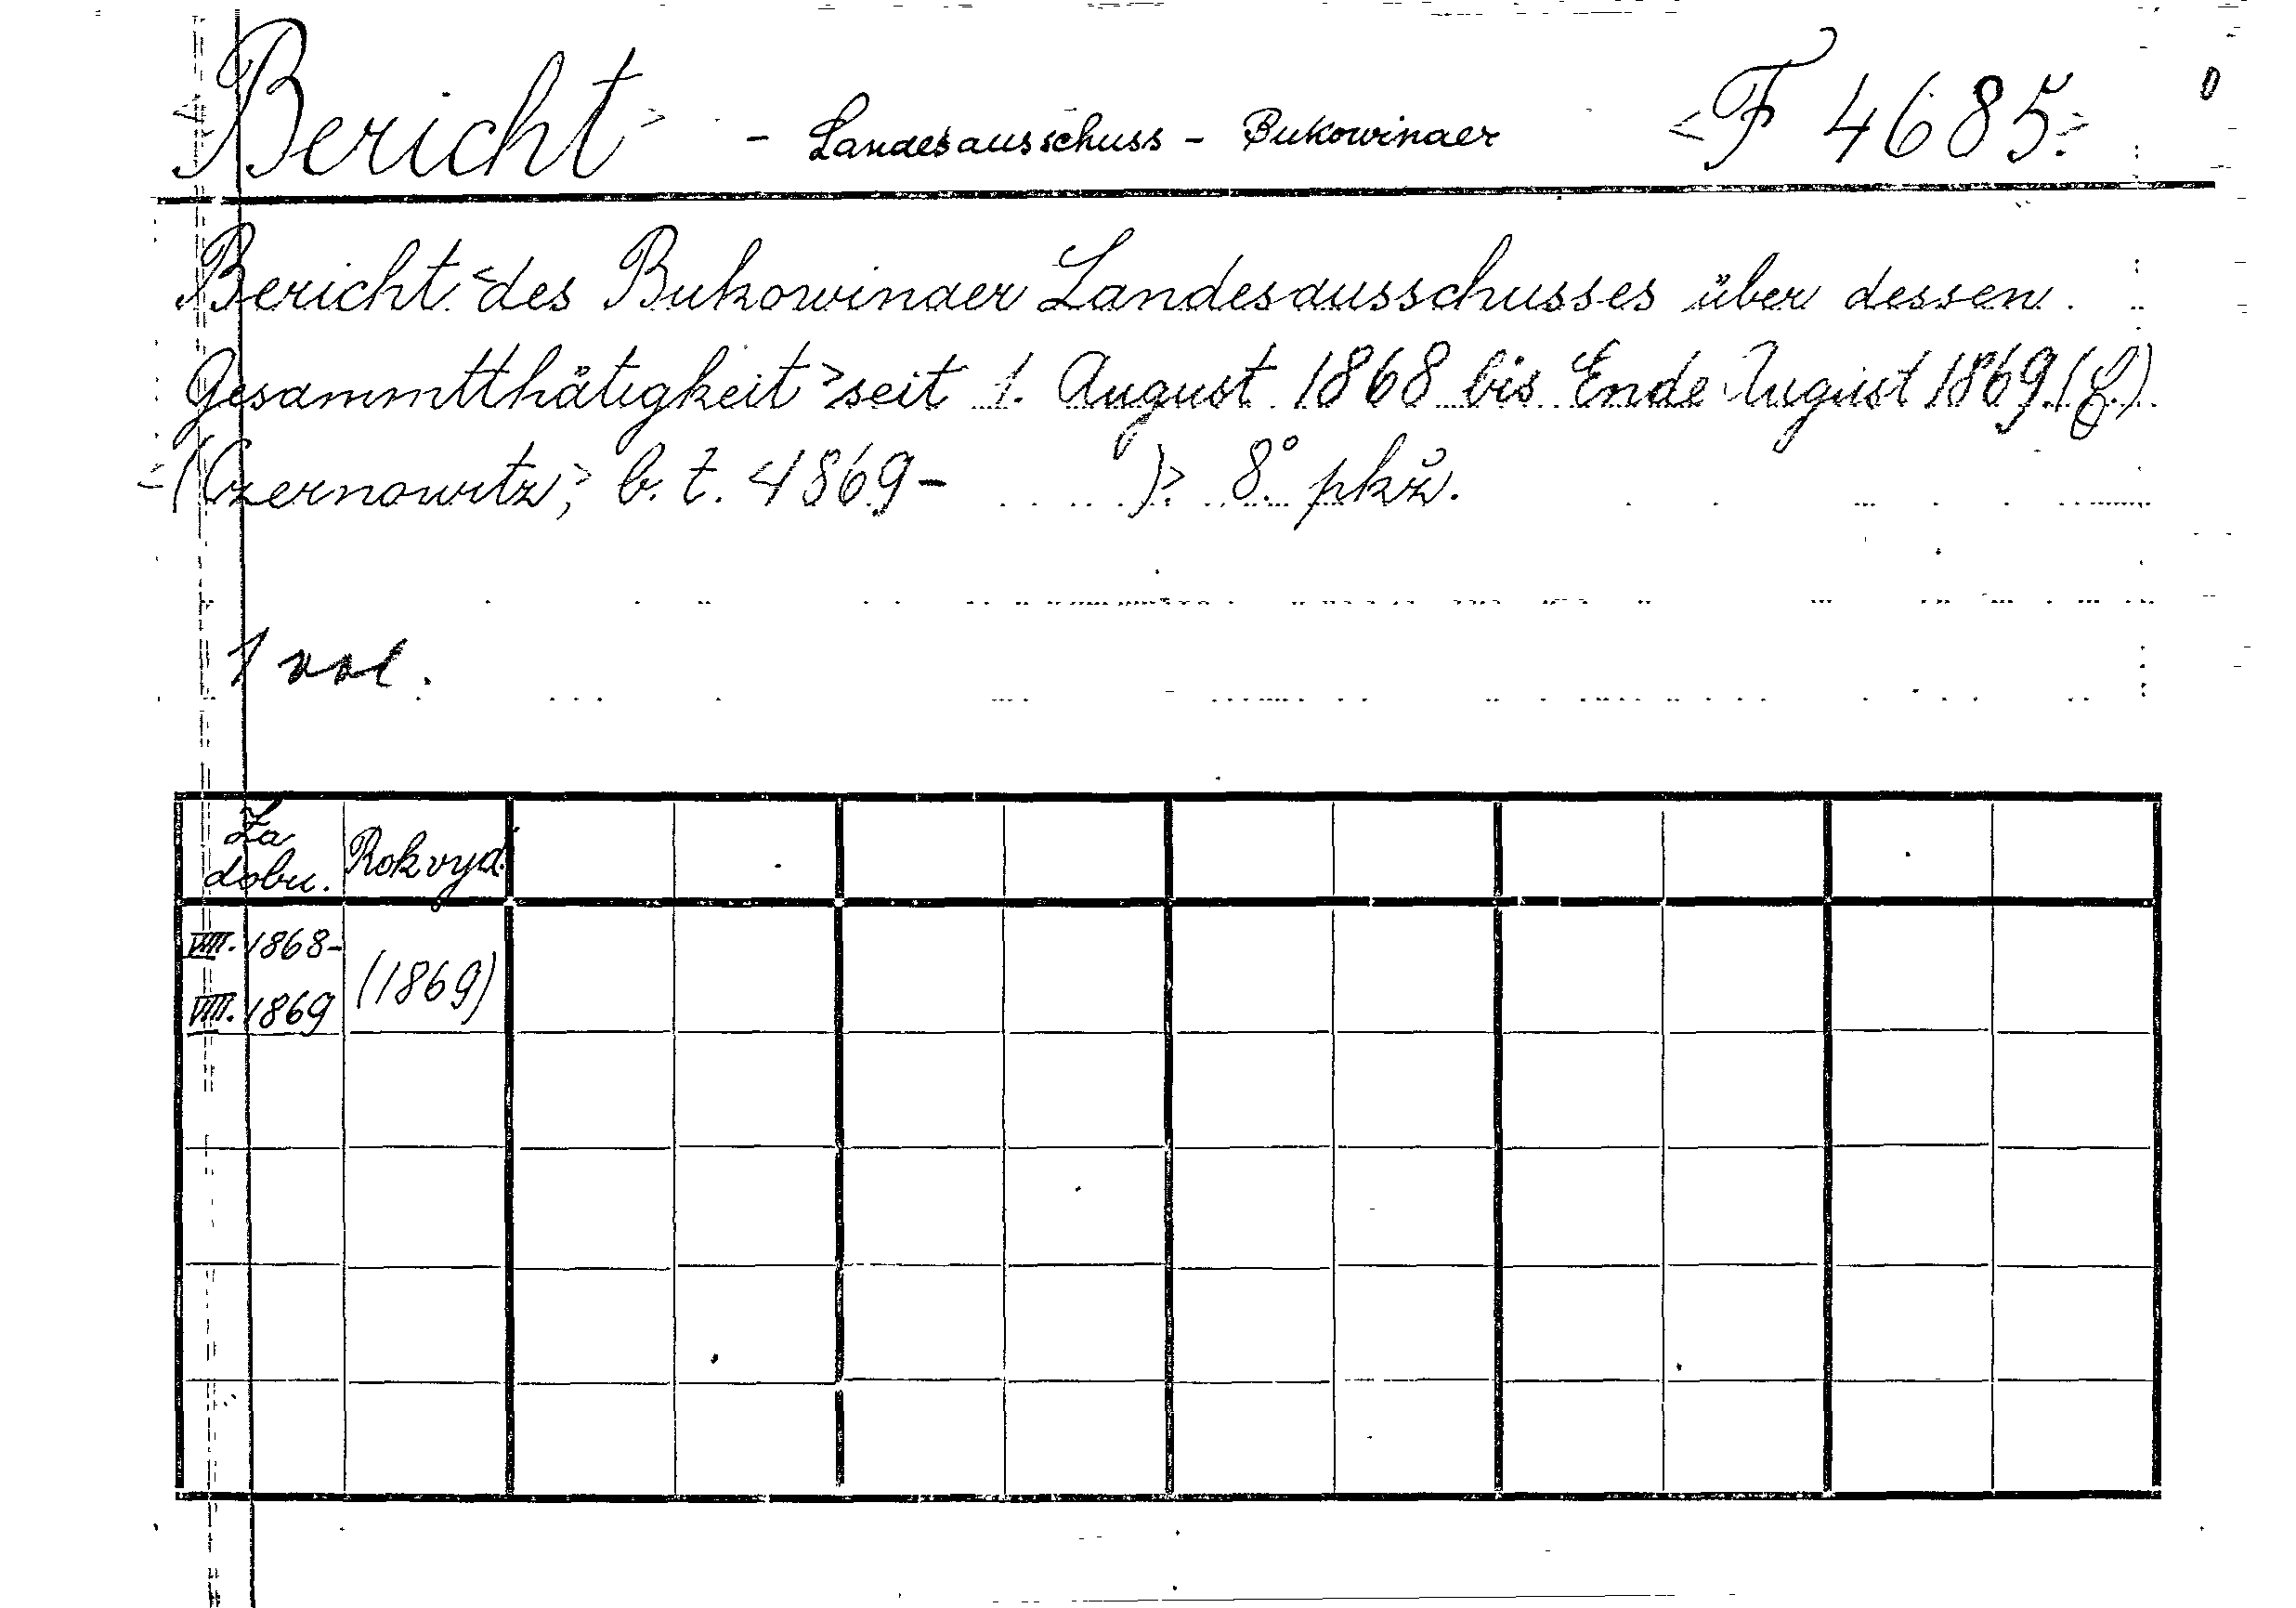 <Bericht> - Landesausschuss - Bukowinaer <F 4685>
Bericht <des Bukowinaer Landesausschusses über dessen
Gesammtthätigkeit> seit 1. August 1868 bis Ende August 1869.
<(Czernowitz,> b. t. 1869- )> 8° pkž.
1 vol.
Za dobu. Rok vyd.
VIII. 1868-
VIII. 1869 (1869)